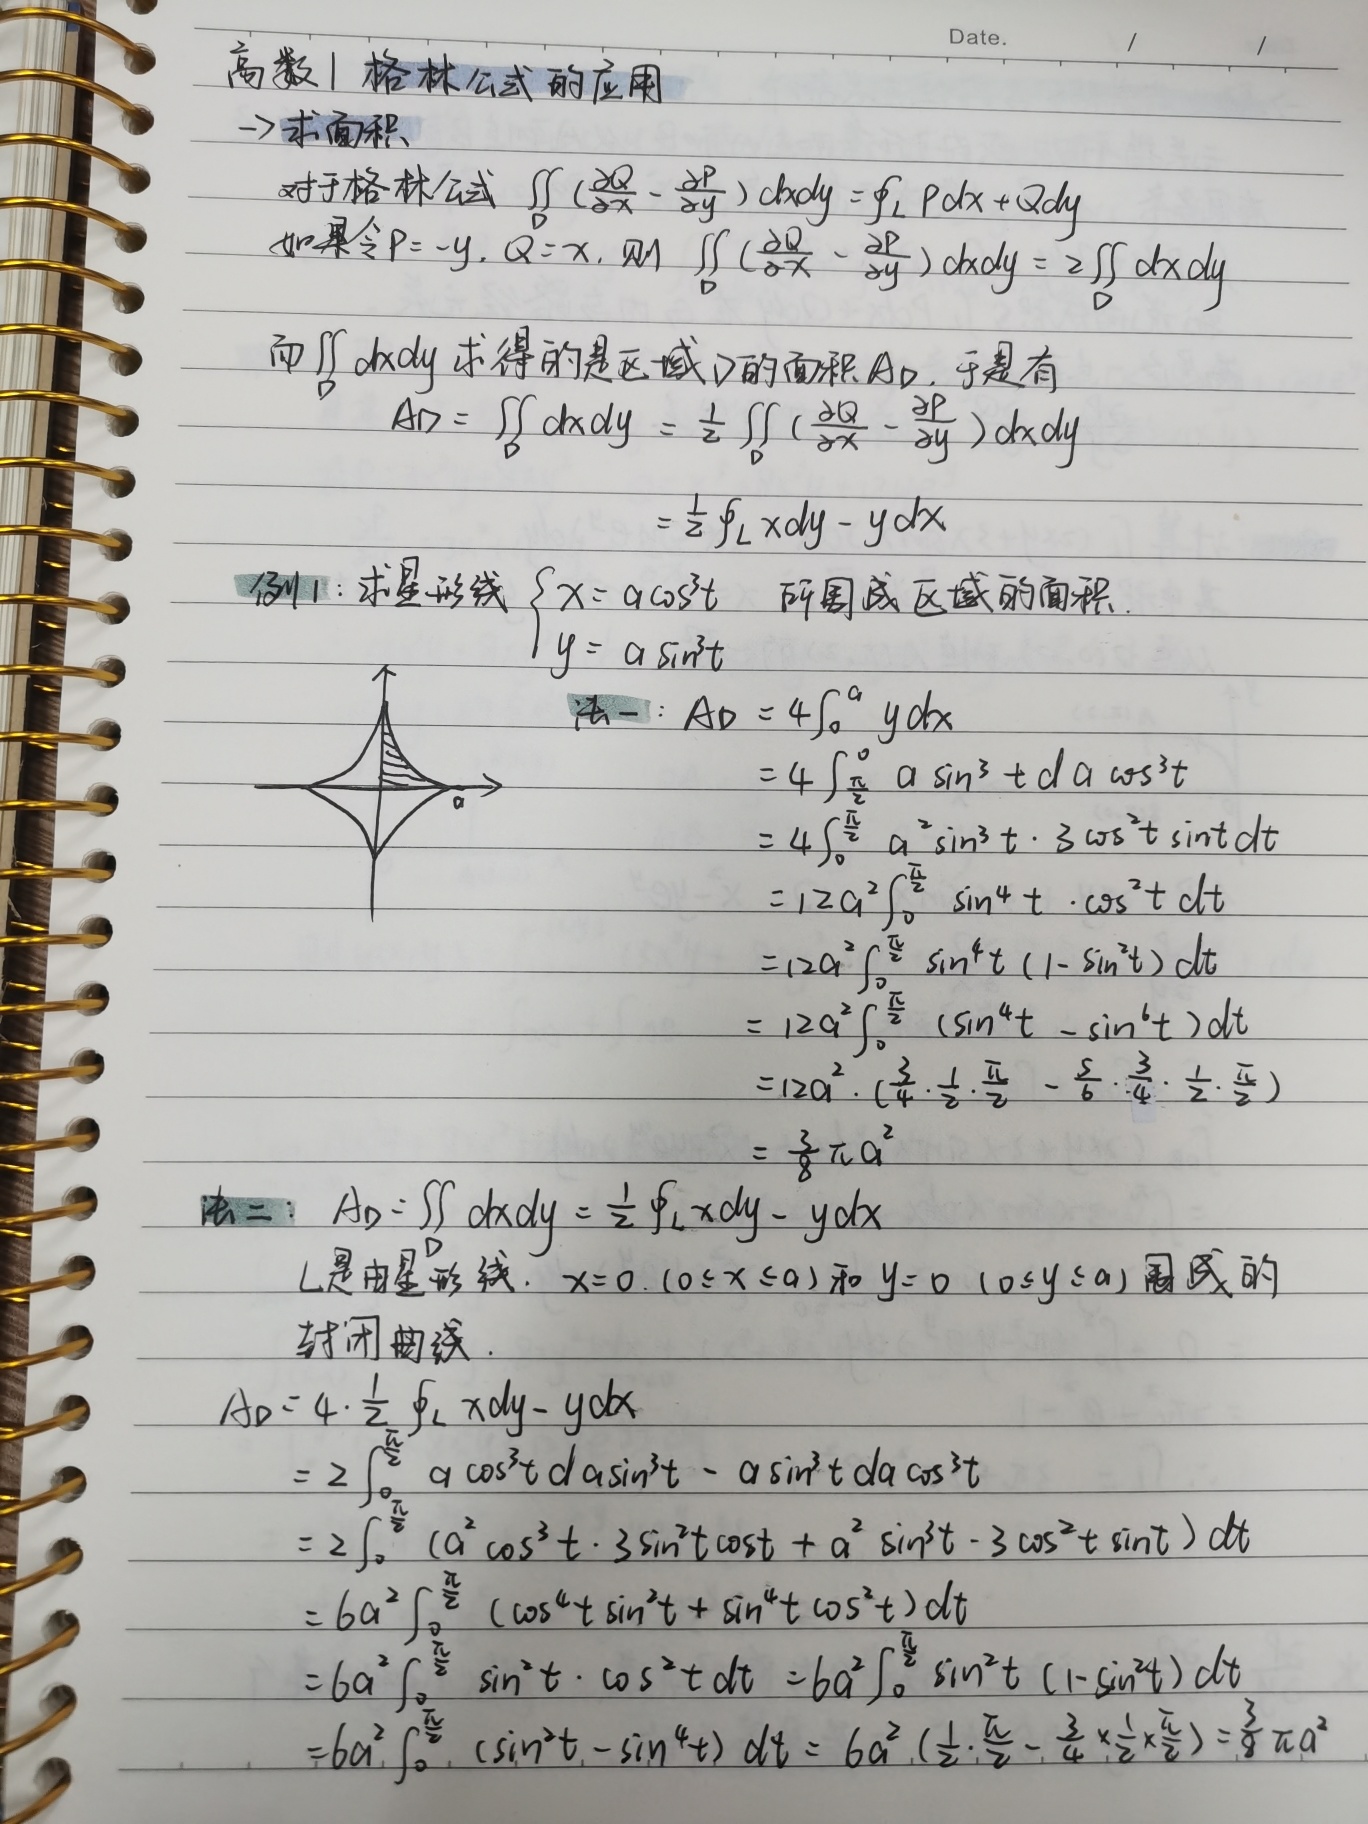 Date. / /
高数 | 格林公式的应用
→求面积
对于格林公式 ∬_D (∂Q/∂x - ∂P/∂y) dxdy = ∮_L Pdx + Qdy
如果令P=-y, Q=x, 则 ∬_D (∂Q/∂x - ∂P/∂y) dxdy = 2∬_D dxdy
而∬_D dxdy 求得的是区域D的面积A_D, 于是有
A_D = ∬_D dxdy = 1/2 ∬_D (∂Q/∂x - ∂P/∂y) dxdy
= 1/2 ∮_L xdy - ydx
例1: 求星形线 { x = a cos³t 所围成区域的面积.
y = a sin³t
法一: A_D = 4∫_0^a ydx
= 4∫_{π/2}^0 a sin³t d a cos³t
a
= 4∫_0^{π/2} a² sin³t · 3cos²t sint dt
= 12a² ∫_0^{π/2} sin⁴t · cos²t dt
= 12a² ∫_0^{π/2} sin⁴t (1 - sin²t) dt
= 12a² ∫_0^{π/2} (sin⁴t - sin⁶t) dt
= 12a² · (3/4 · 1/2 · π/2 - 5/6 · 3/4 · 1/2 · π/2)
= 3/8 πa²
法二: A_D = ∬_D dxdy = 1/2 ∮_L xdy - ydx
L是由星形线, x=0, (0≤x≤a) 和 y=0 (0≤y≤a) 围成的
封闭曲线.
A_D = 4 · 1/2 ∮_L xdy - ydx
= 2∫_0^{π/2} a cos³t d a sin³t - a sin³t d a cos³t
= 2∫_0^{π/2} (a² cos³t · 3sin²t cost + a² sin³t · 3cos²t sint) dt
= 6a² ∫_0^{π/2} (cos⁴t sin²t + sin⁴t cos²t) dt
= 6a² ∫_0^{π/2} sin²t · cos²t dt = 6a² ∫_0^{π/2} sin²t (1 - sin²t) dt
= 6a² ∫_0^{π/2} (sin²t - sin⁴t) dt = 6a² (1/2 · π/2 - 3/4 × 1/2 × π/2) = 3/8 πa²